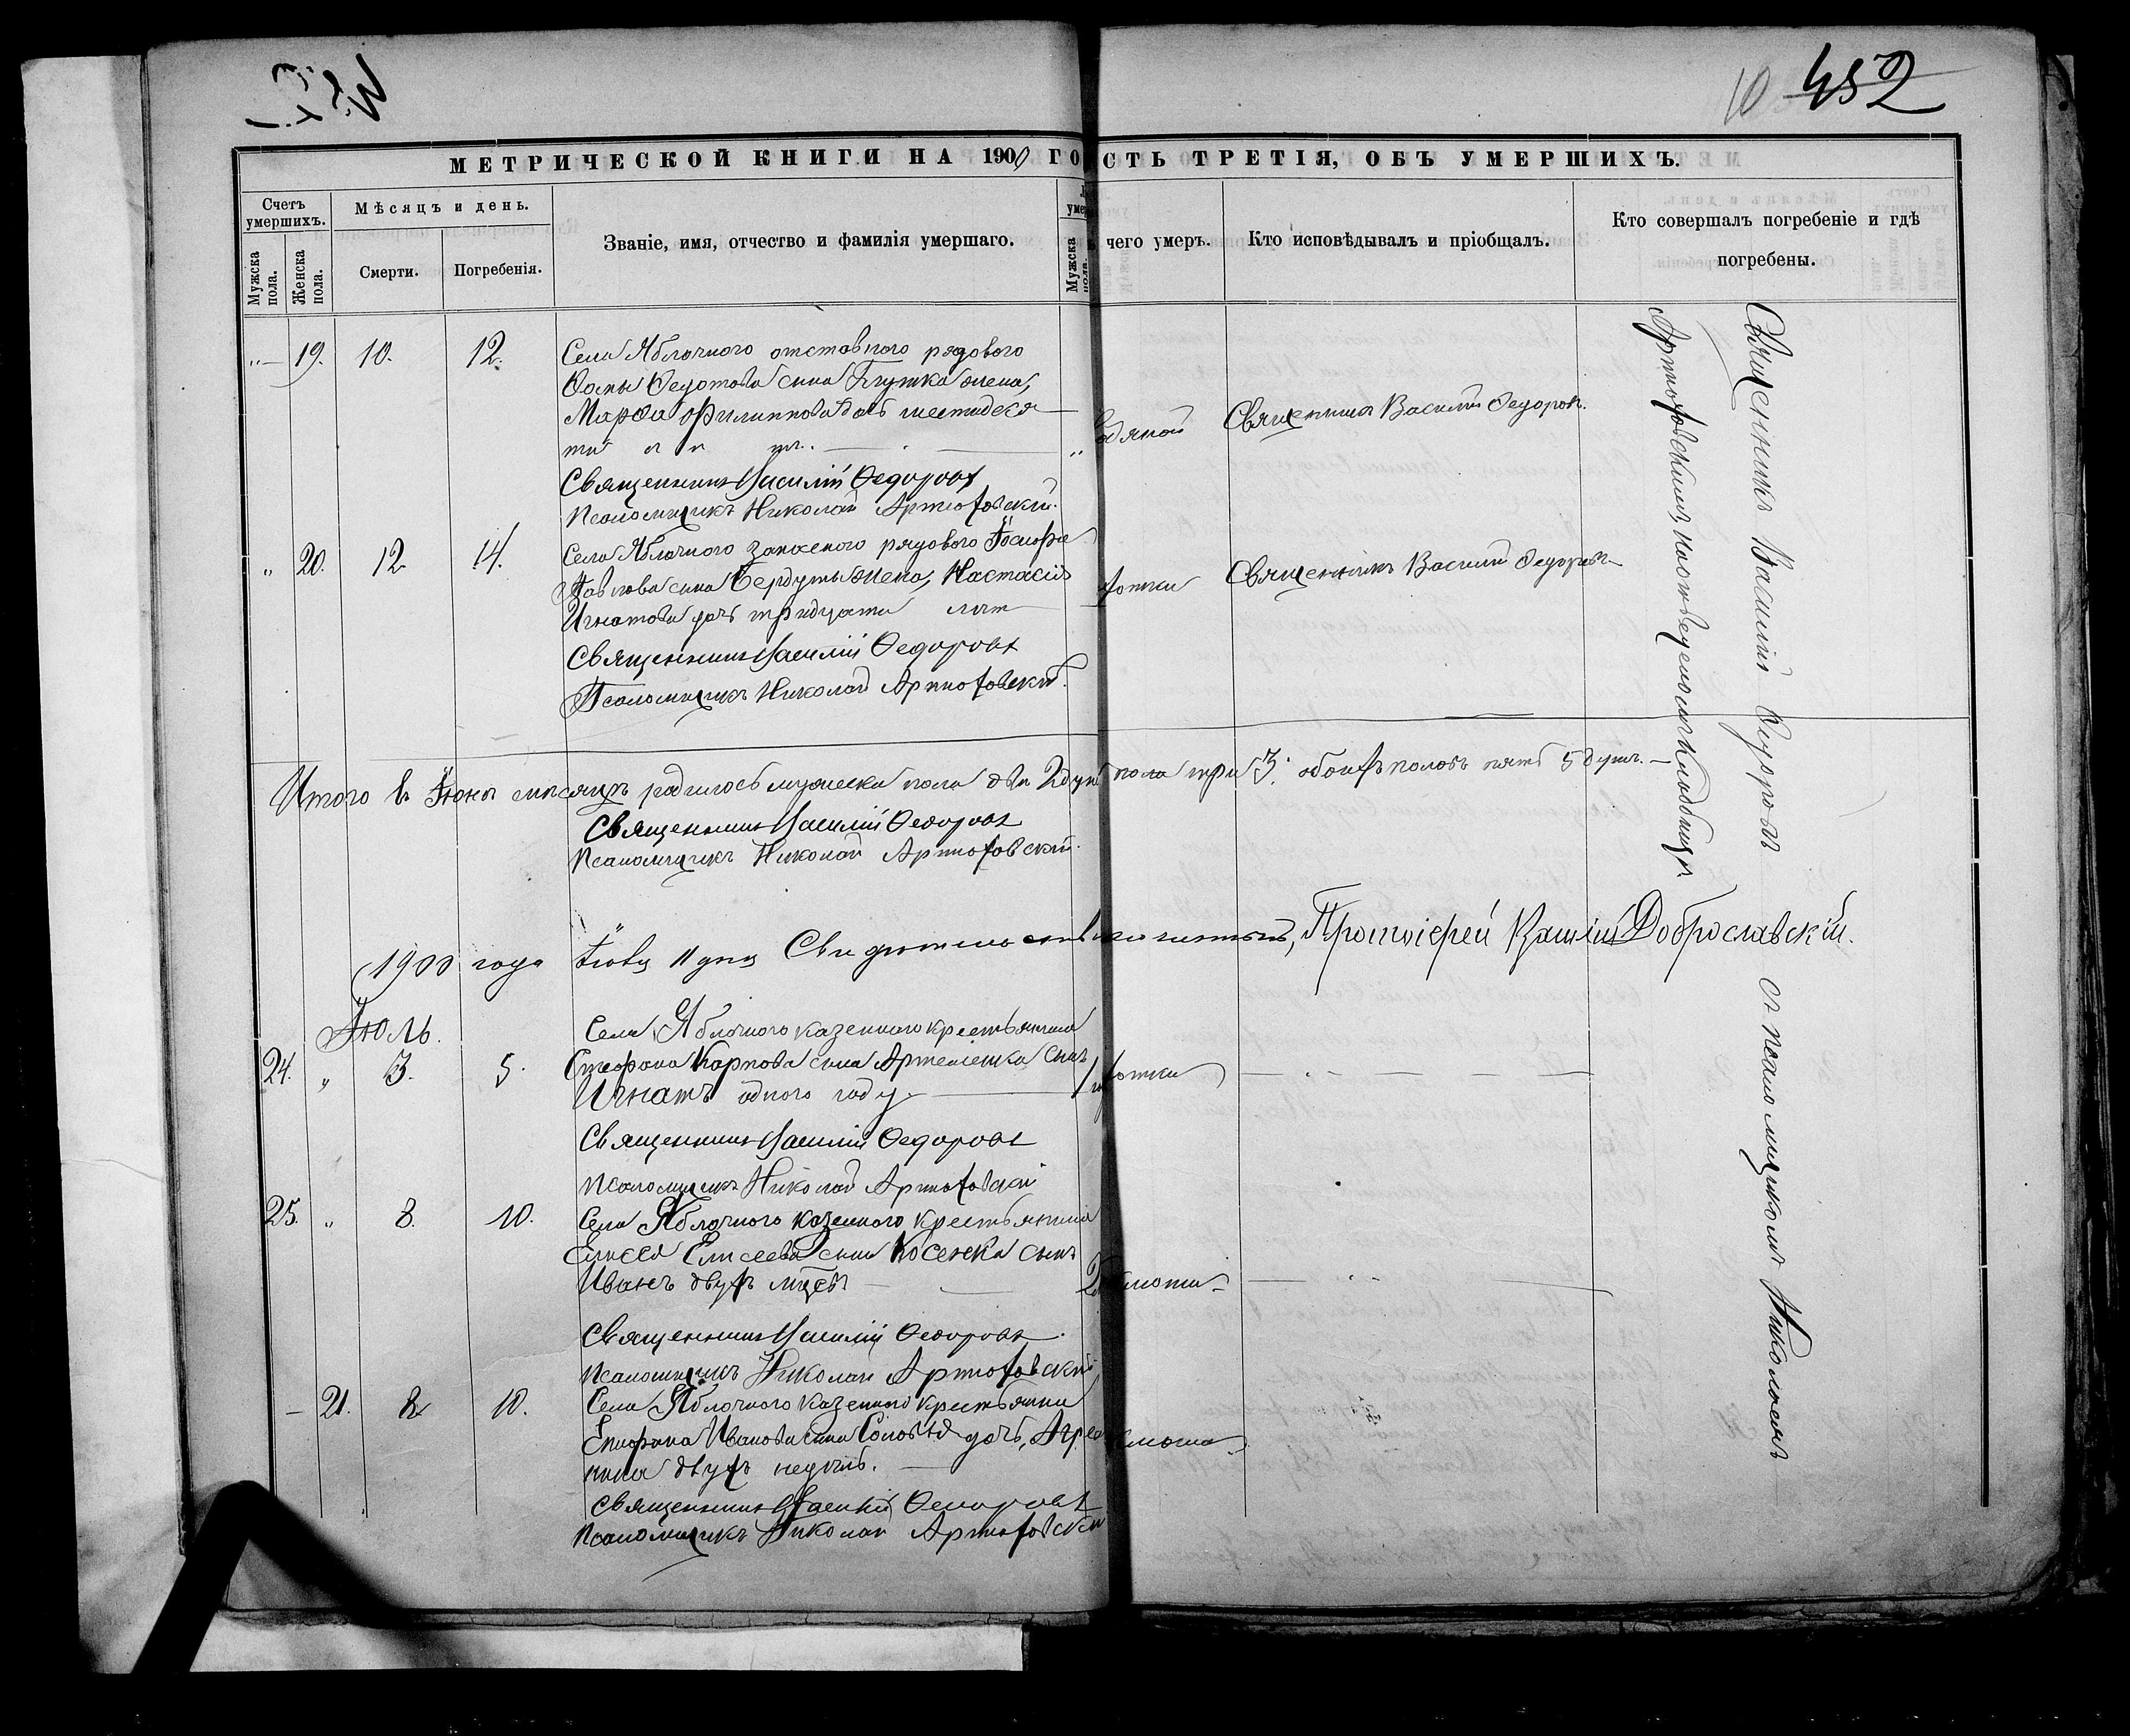 10 452
МЕТРИЧЕСКОЙ КНИГИ НА 1900 ГО
СТЬ ТРЕТІЯ, ОБЪ УМЕРШИХЪ.
Счетъ умершихъ.
Мѣсяцъ и день.
Мужска пола.
Женска пола.
Смерти.
Погребенія.
Званіе, имя, отчество и фамилія умершаго.
Мужска пола.
чего умеръ.
Кто исповѣдывалъ и пріобщалъ.
Кто совершалъ погребеніе и гдѣ
погребены.
„ 19. 10. 12.
Села Яблочного отставного рядового
Фомы Федотова сына жена,
Марфа Филиппова дочь шестидеся
ти лѣтъ.
водяной
Священникъ Василій Федоровъ.
Священникъ Василій Федоровъ
Псаломщикъ Николай Артюховскій.
„ 20. 12 14.
Села Яблочного запасного рядового Іосифа
Павлова сына жена, Настасія
Игнатова дочь тридцати лѣтъ
Священникъ Василій Федоровъ
Священникъ Василій Федоровъ
Псаломщикъ Николай Артюховскій.
Итого въ Іюнѣ мѣсяцѣ родилось мужеска пола два 2 пола три 3. обоихъ половъ пять 5 душъ.
Священникъ Василій Федоровъ
Псаломщикъ Николай Артюховскій.
1900 года 11 дня Протоіерей Василій Доброславскій.
Іюль.
24. „ 3. 5.
Села Яблочного казенного крестьянина
Стефана Карпова сына Артеменка сынъ
Игнатъ одного году.
1
Священникъ Василій Федоровъ
Псаломщикъ Николай Артюховскій
25. „ 8. 10.
Села Яблочного казенного крестьянина
Елисея Елисеева сына Косенка сынъ
Иванъ двухъ мѣсе
2
Священникъ Василій Федоровъ.
Псаломщикъ Николай Артюховскій
21. 8 10.
Села Яблочного казенного крестьянина
Ивана сына Соловья дочь,
двухъ недѣль.
Священникъ Василій Федоровъ
Псаломщикъ Николай Артюховскій
Священникъ Василій Федоровъ съ псаломщикомъ Николаемъ
Артюховскимъ на кладбищѣ